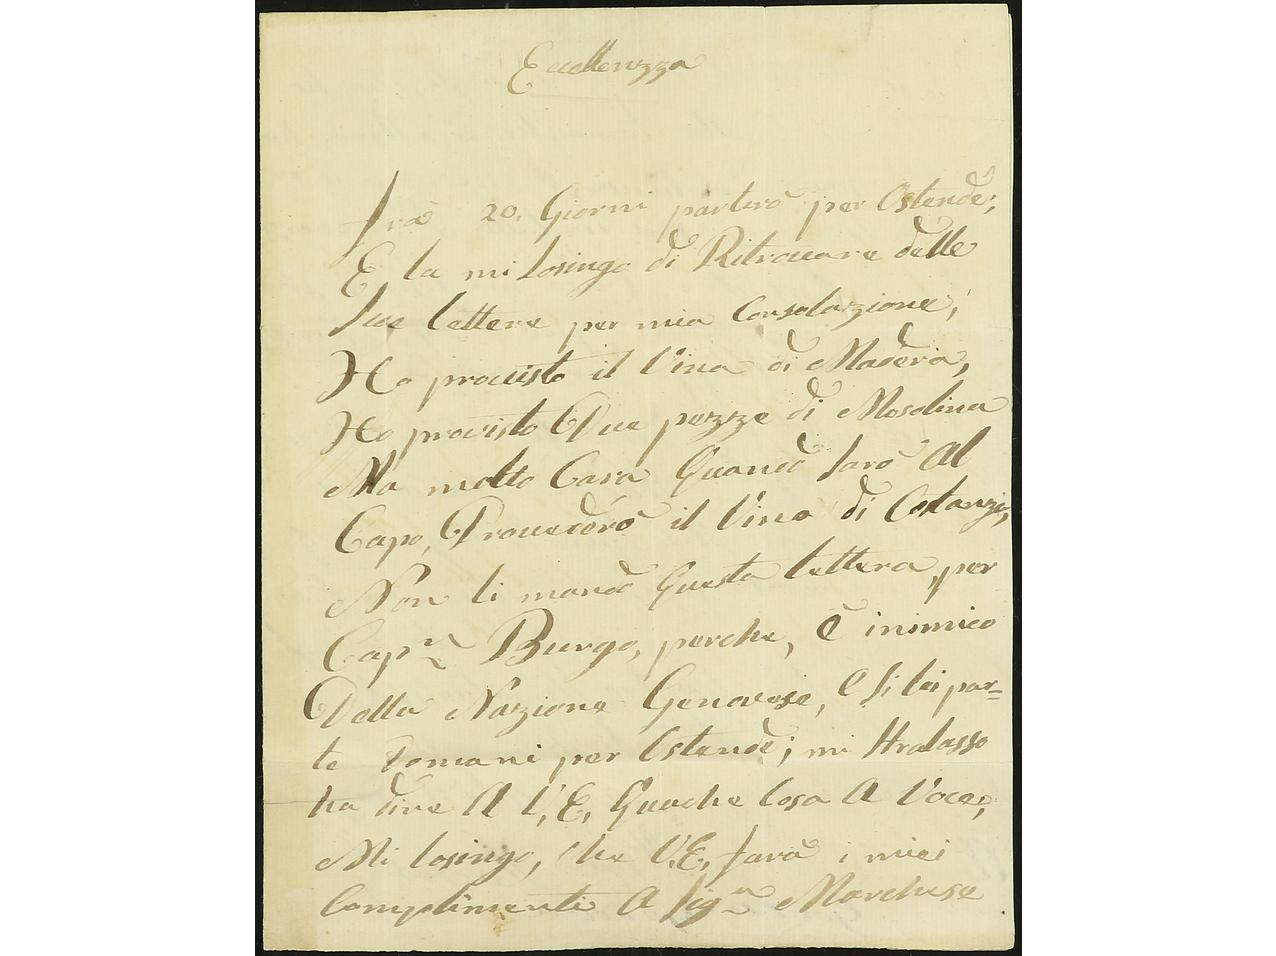 Eccellenzza
frà 20. Giorni partirò per Ostende;
E la mi losingo di Ritrouare delle
sue lettere per mia Consolazione,
Ho prouisto il Vino di Maderia,
Ho provisto Due pezze di Mosolina
Ma molto Cara Quando sarò Al
Capo, Prouederò il Vino di Costanzi,
Non li mando Questa lettera, per
Capn Burgo, perche, è inimico
Della Nazione Genovese, e si lei par=
te Domani per Ostende; mi tralasso
ha dire A V,E, Quache Cosa A Voce,
Mi losingo, che V,E, farà i miei
Complimenti A Siga Marchesa